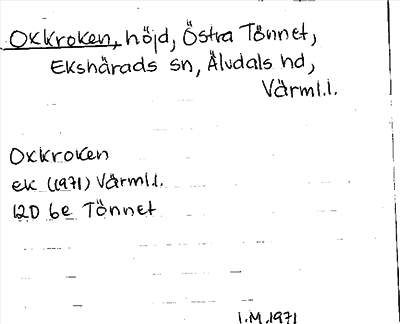 Oxkroken, höjd, Östra Tönnet,
Ekshärads sn, Älvdals hd,
Värml.l.
Oxkroken
ek (1971) Värml.l.
12D 6e Tönnet
I.M.1971